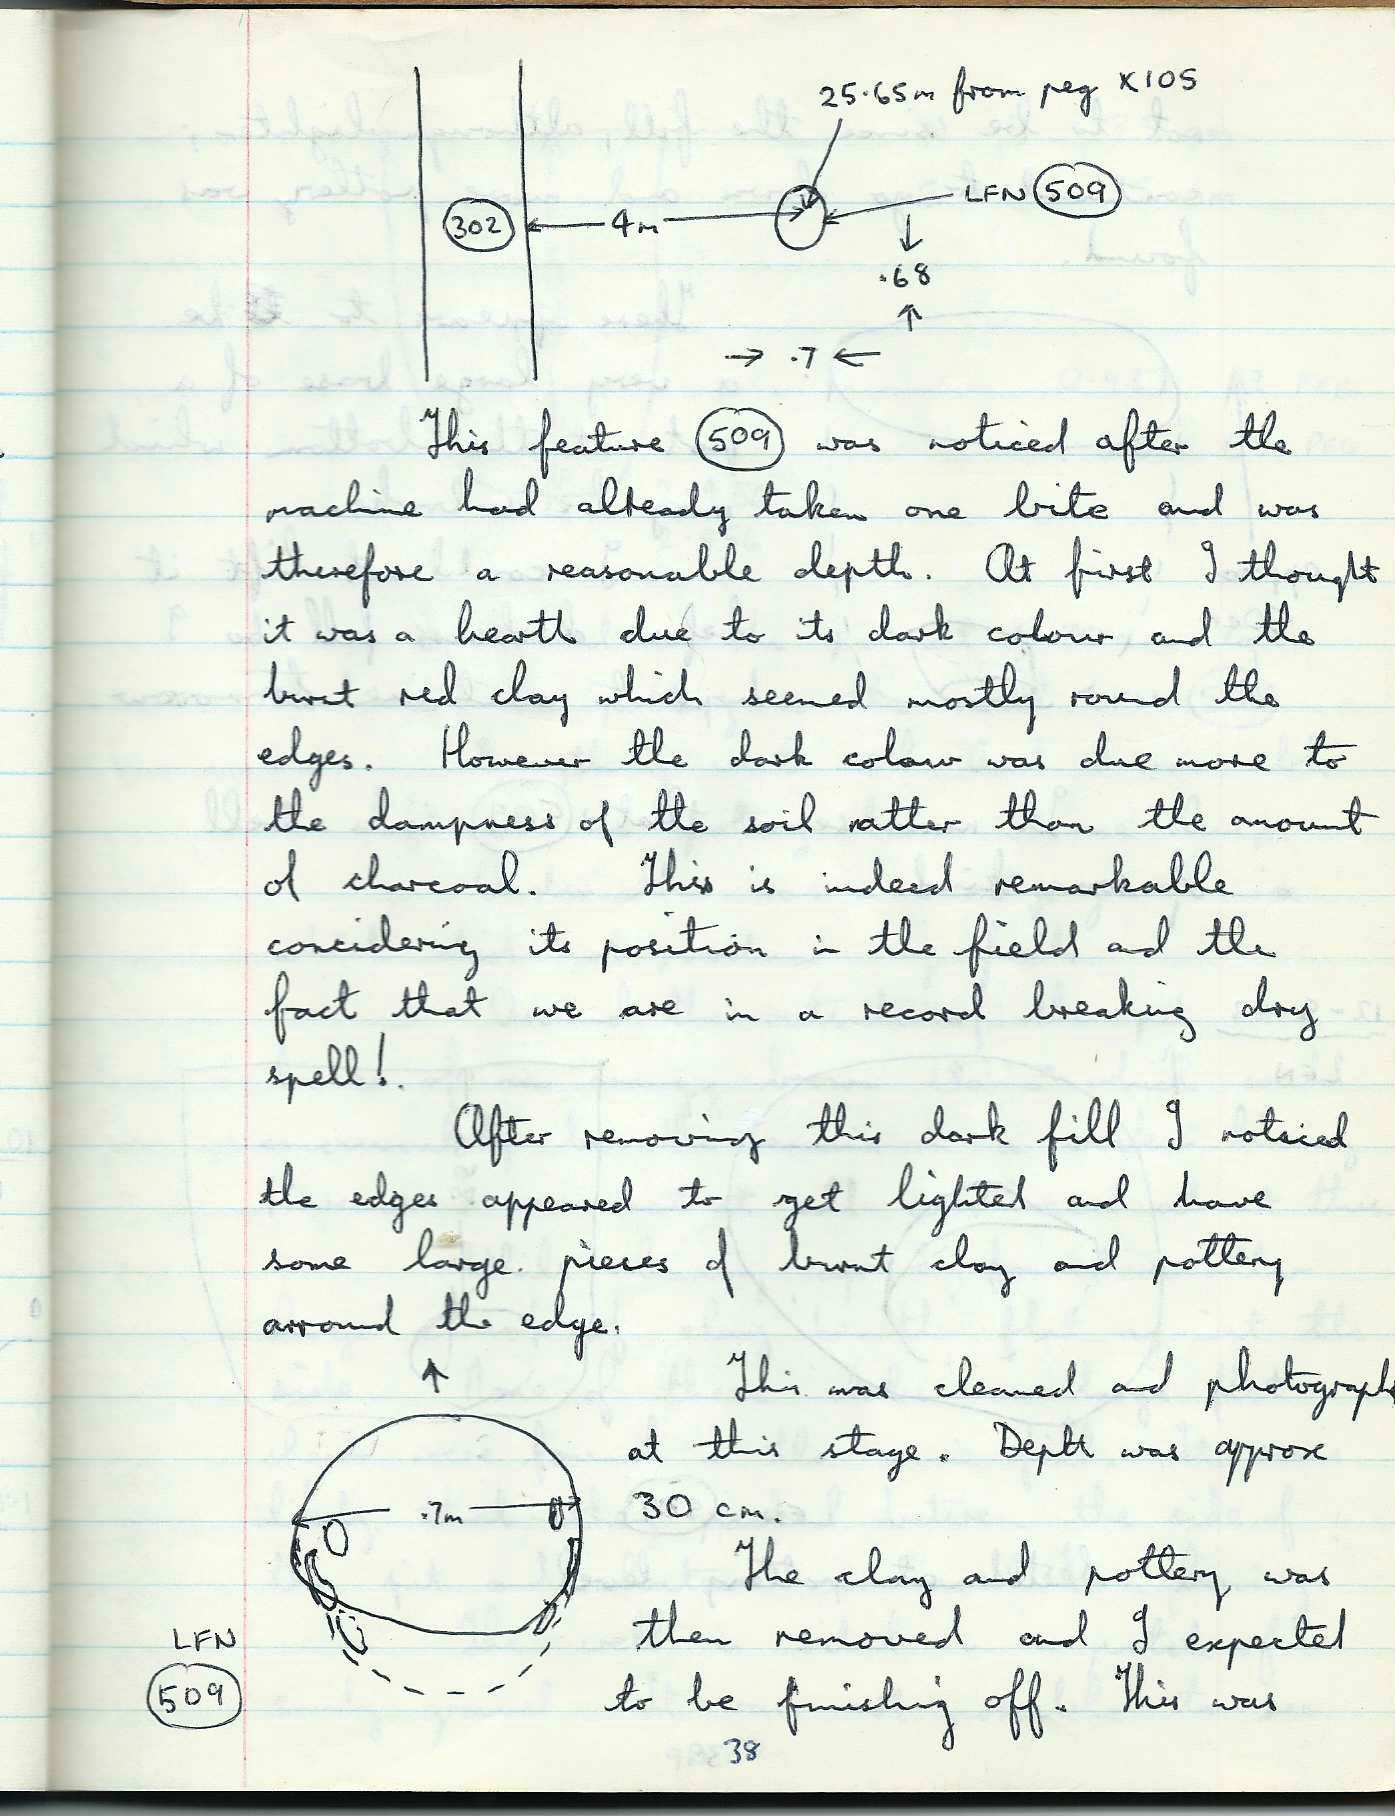 25.65m from peg X105
LFN 509
302
4m
.68
.7
This feature 509 was noticed after the
machine had already taken one bite and was
therefore a reasonable depth. At first I thought
it was a hearth due to its dark colour and the
burnt red clay which seemed mostly round the
edges. However the dark colour was due more to
the dampness of the soil rather than the amount
of charcoal. This is indeed remarkable
concidering its position in the field and the
fact that we are in a record breaking dry
spell!.
After removing this dark fill I noticed
the edges appeared to get lighted and have
some large pieces of burnt clay and pottery
arround the edge.
This was cleaned and photograph
at this stage. Depth was approx
.7m
30 cm.
The clay and pottery was
then removed and I expected
to be finishing off. This was
LFN
509
38